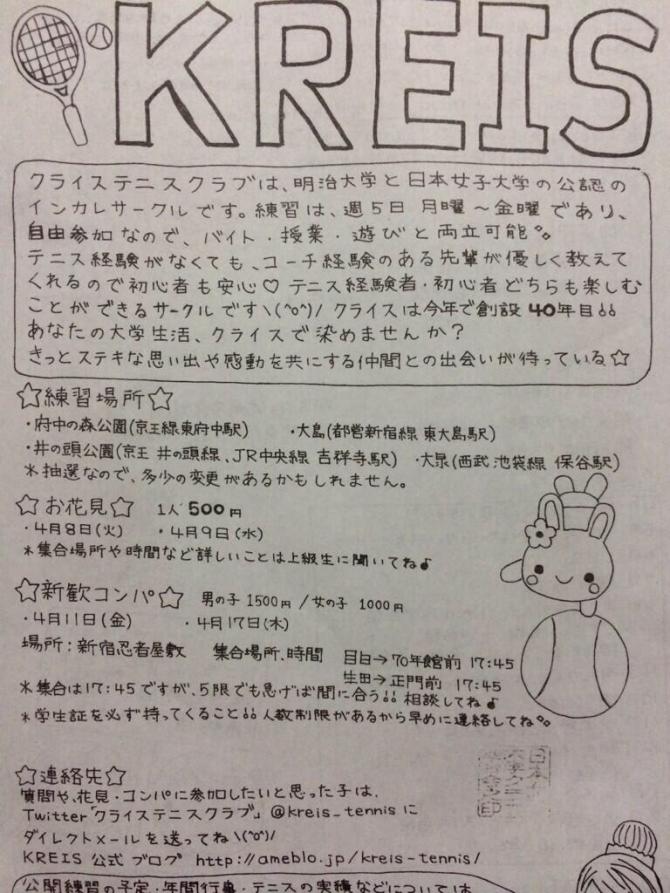 KREIS
クライステニスクラブは、明治大学と日本女子大学の公認の
インカレサークルです。練習は、週5日 月曜〜金曜であり、
自由参加なので、バイト・授業・遊びと両立可能。
テニス経験がなくても、コーチ経験のある先輩が優しく教えて
くれるので初心者も安心♡ テニス経験者・初心者どちらも楽しむ
ことができるサークルです\(^o^)/ クライスは今年で創設 40年目!!
あなたの大学生活、クライスで染めませんか?
きっとステキな思い出や感動を共にする仲間との出会いが待っている☆
☆練習場所☆
・府中の森公園(京王線東府中駅) ・大島(都営新宿線 東大島駅)
・井の頭公園(京王 井の頭線、JR中央線 吉祥寺駅) ・大泉(西武池袋線 保谷駅)
*抽選なので、多少の変更があるかもしれません。
☆お花見☆ 1人 500円
・4月8日(火) ・4月9日(水)
*集合場所や時間など詳しいことは上級生に聞いてね♪
☆新歓コンパ☆ 男の子 1500円 / 女の子 1000円
・4月11日(金) ・4月17日(木)
場所:新宿忍者屋敷 集合場所、時間 目白→70年館前 17:45
生田→正門前 17:45
*集合は17:45ですが、5限でも急げば間に合う!! 相談してね♪
*学生証を必ず持ってくること!! 人数制限があるから早めに連絡してね。
☆連絡先☆
質問や、花見・コンパに参加したいと思った子は、
Twitter「クライステニスクラブ」@kreis_tennis に
ダイレクトメールを送ってね\(^o^)/
KREIS 公式ブログ http://ameblo.jp/kreis-tennis/
公開練習の予定・年間行事・テニスの実績などについては